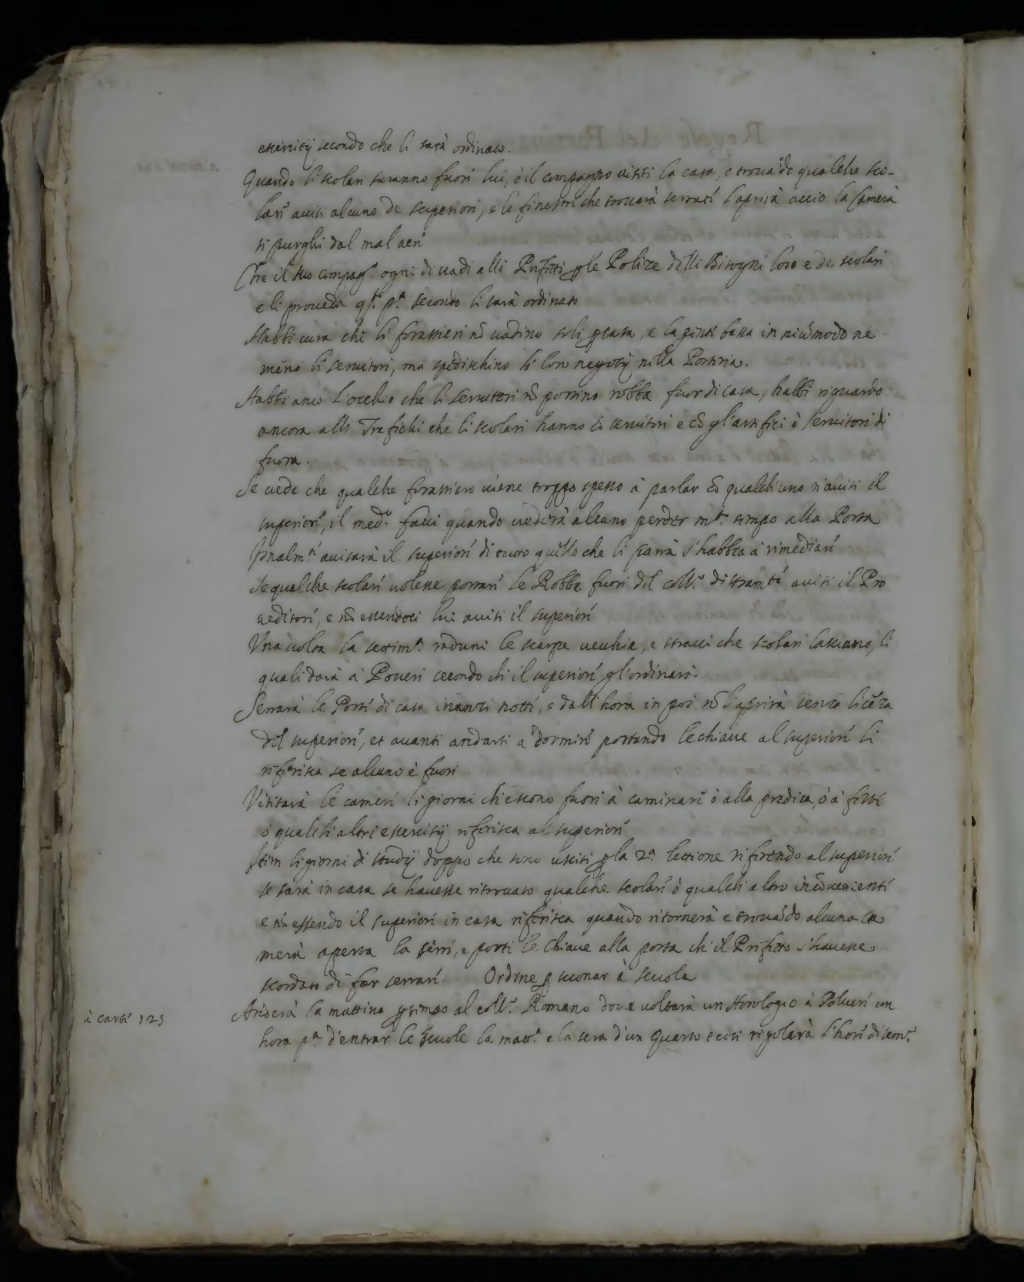 essercitij secondo che li sarà ordinato.
Quando li scolari saranno fuori lui, ò il compagno visiti la casa, e trouãdo qualche sco-
lari auisi alcuno de superiori, e le finestri che trouarà serrati l'aprirà accio la Camera
si purghi dal mal aeri
Che il suo compagº ogni di uadi alli Prefetti ple Polize delli Bisogni loro e de scolari
e li proueda qº pª secondo li sarà ordinato
Habbi cura che li forastieri nõ uadino soli pcasa, e la gente bassa in niũ modo ne
meno li seruitori, ma spedischino li loro negotij nella Portina.
Habbi anco l'occhio che li seruitori nõ portino robba fuor di casa, habbi riguardo
ancora alli Trafichi che li scolari hanno cõ seruitori e cõ gl'artefici ò seruitori di
fuora.
Se uede che qualche forastiero uiene troppo spesso à parlar cõ qualchuno n'auisi il
superiori, il medº facci quando uederà alcuno perder mtº tempo alla Porta
finalmtº auisarà il superiori di tutto quello che li parrà s'habbia à rimediari
Se qualche scolari uolesse portari le Robba fuori del collº auisi il Pro
ueditori, e nõ essendoci lui auisi il superiori
Una uolta la settimª raduni le scarpe uecchie, e stracci che scolari lasciano, li
quali darà à Poueri secondo chi il superiori gl'ordinarà.
Serrarà le Porti di casa innanzi notti, e dall'hora in poi nõ l'aprirà senza licẽza
del superiori, et auanti andarsi a dormiri portando le chiaue al superiori li
riferisca se alcuno è fuori
Visitarà le cameri li giorni chi escono fuori à caminari ò alla predica, ò à festi
ò qualchi altri essercitij riferisca al superiori
Item li giorni di studij doppo che sono usciti pla 2ª lettione riferendo al superiori
se sarà in casa se hauesse ritrouato qualche scolari ò qualchi altro incõuenienti
e nõ essendo il superiori in casa riferisca quando ritornerà e trouãdo alcuna ca
mera aperta la serri, e porti le chiaue alla porta chi il Prefetto s'hauesse
scordato di far serrari Ordine p suonar à scuola
à carti 125 Anderà la mattina ptempo al collº Romano doue uoltarà un Horologio à Polueri un
hora pª d'entrar le scuole la mattª e la sera d'un Quarto e cosi regolarà l'hori di semº